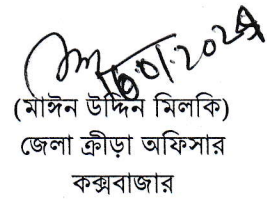 16.01.2024
(মাঈন উদ্দিন মিলকি)
জেলা ক্রীড়া অফিসার
কক্সবাজার